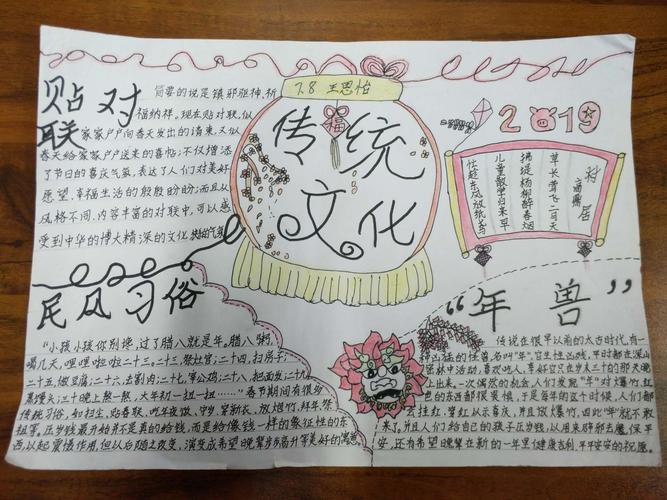 贴对联
简单的说是镇邪驱神、祈
福纳祥。现在贴对联,似
家家户户向春天发出的请柬,又似
春天给家家户户送来的喜帖;不仅增添
了节日的喜庆气氛,表达了人们对美好
愿望、幸福生活的殷殷盼盼;而且从
风格不同,内容丰富的对联中,可以感
受到中华的博大精深的文化
7.8 王思怡
福
传统
文化
2019
村居
高鼎
草长莺飞二月天
拂堤杨柳醉春烟
儿童散学归来早
忙趁东风放纸鸢
民风习俗
“小孩小孩你别馋,过了腊八就是年。腊八粥,
喝几天,哩哩啦啦二十三。二十三,祭灶官;二十四,扫房子;
二十五,做豆腐;二十六,去割肉;二十七,宰公鸡;二十八,把面发;二十九,
蒸馒头;三十晚上熬一熬,大年初一扭一扭……”春节期间有很多
传统习俗,如扫尘,贴春联,吃年夜饭,守岁,穿新衣,放烟竹,拜年祭
祖等。压岁钱最开始并不是真的给钱,而是给像钱一样的象征性的东
西,以起震慑作用,但以后随之改变,演变成希望晚辈岁岁高升等美好的寓意
“年兽”
传说在很早以前的太古时代,有一
种凶猛的怪兽名叫“年”,它生性凶残,平时都在深山
密林中活动,喜欢吃人,幸好它在岁末三十的那天晚
上出来。一次偶然的机会,人们发现“年”对大爆竹,红
色的东西都很畏惧,于是每年的这个时候,人们都
去挂红,穿红以示喜庆,并且放爆竹,因此“年”就不敢
来了。并且人们给自己的孩子压岁钱,以用来辟邪去魔,保平
安,还有希望晚辈在新的一年里健康吉利,平平安安的祝愿。